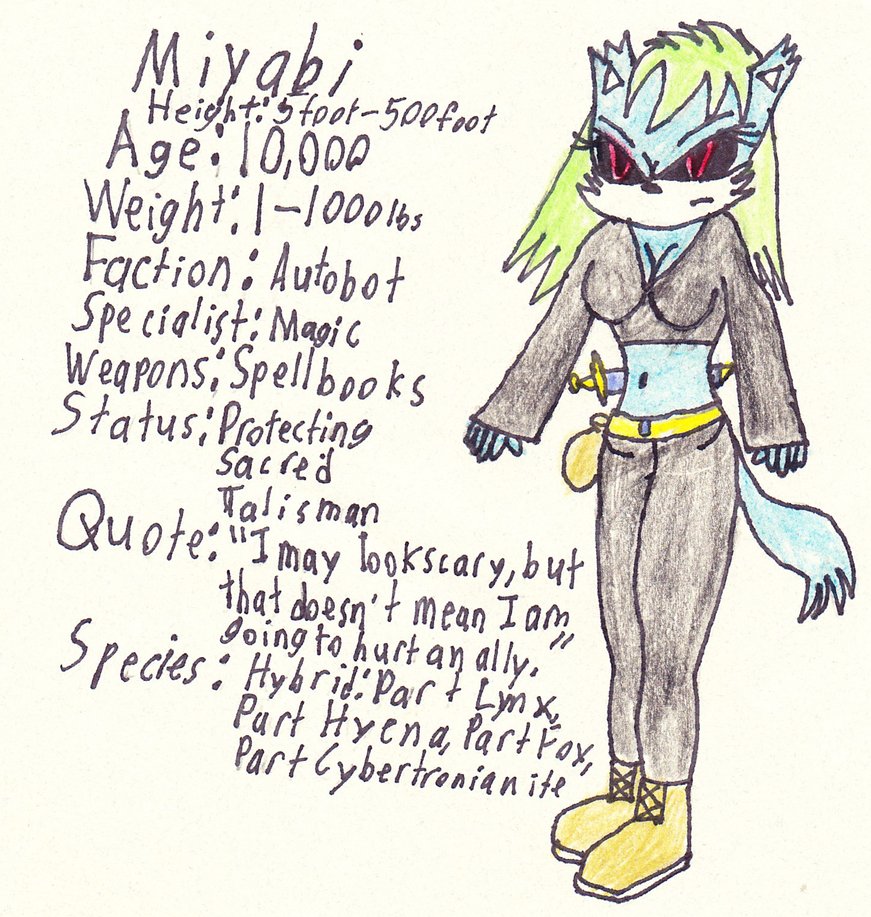 Miyabi
Height: 5foot-500foot
Age: 10,000
Weight: 1-1000lbs
Faction: Autobot
Specialist: Magic
Weapons: Spellbooks
Status: Protecting
Sacred
Talisman
Quote: "I may look scary, but
that doesn't mean I am
going to hurt an ally."
Species: Hybrid: Part Lynx,
Part Hyena, Part Fox,
Part Cybertronianite